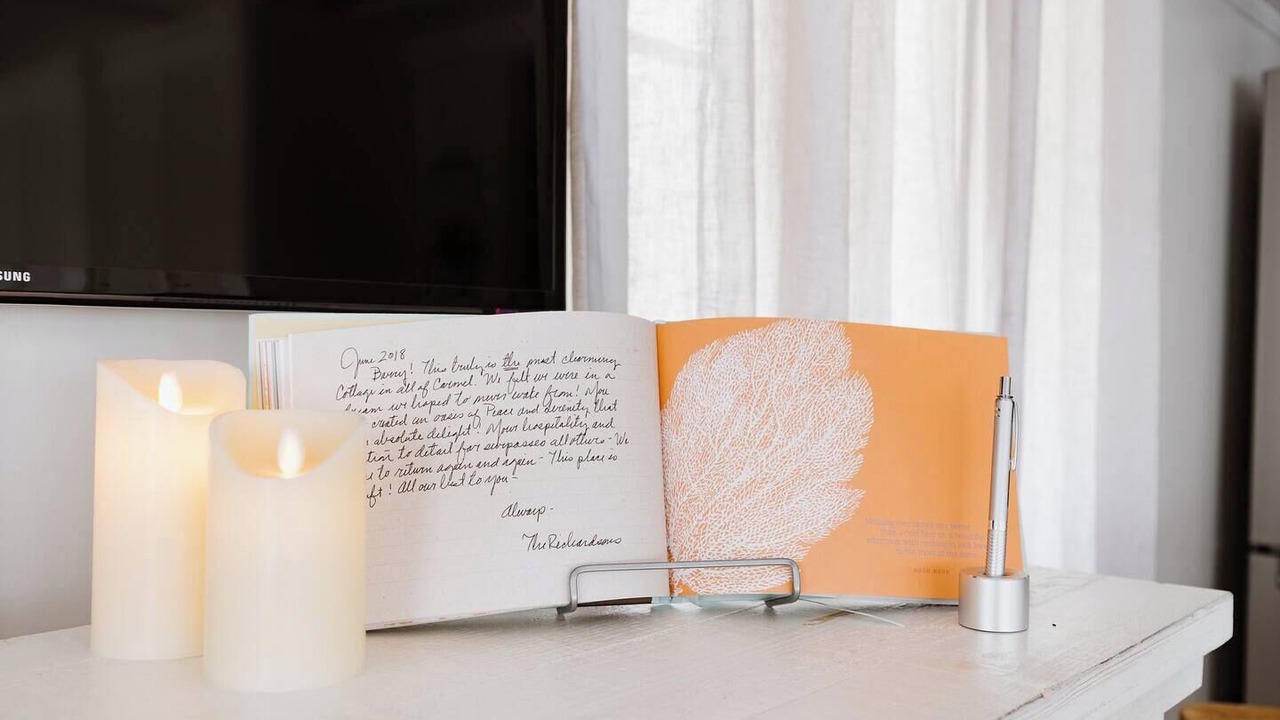 SUNG
June 2018
Berry! This truly is the most charming
Cottage in all of Carmel. We felt we were in a
dream we hoped to never wake from! You
created an oasis of Peace and serenity that
absolute delight! Your hospitality and
tion to detail far surpasses all others - We
to return again and again - This place is
ft! All our best to you -
Always -
The Richardsons